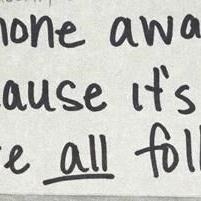 one awa
ause it's
e all foll